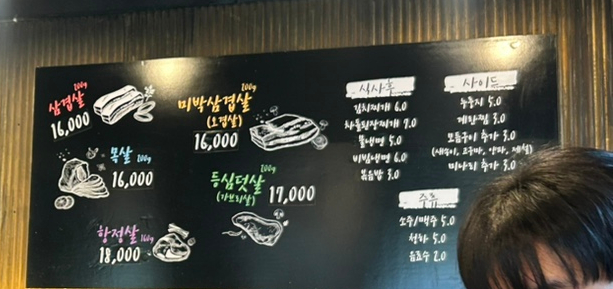 삼겹살 100g
16,000
목살 100g
16,000
항정살 100g
18,000
미박삼겹살 100g
(오겹살)
16,000
등심덧살 100g
(가브리살)
17,000
식사류
김치찌개 6.0
차돌된장찌개 7.0
물냉면 5.0
비빔냉면 6.0
볶음밥 3.0
사이드
누룽지 5.0
계란찜 3.0
모듬구이 추가 3.0
(새송이, 고구마, 양파,
미나리 추가 3.0
주류
소주/맥주 5.0
청하 5.0
음료수 2.0